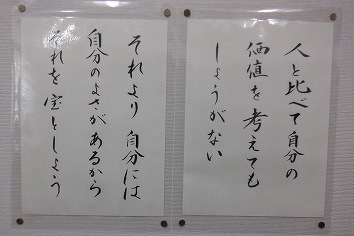 人と比べて自分の
価値を考えても
しょうがない
それより自分には
自分のよさがあるから
それを宝としよう